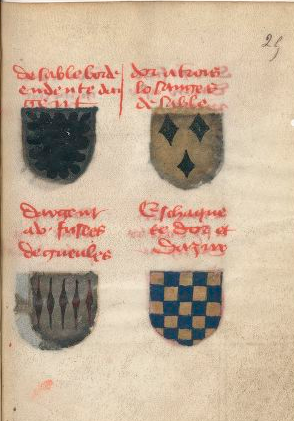 25
de sable borde
endente dar
gent
dor a trois
losanges
de sable
dargent
a v fusees
de gueules
Eschaque
te dor et
dazur